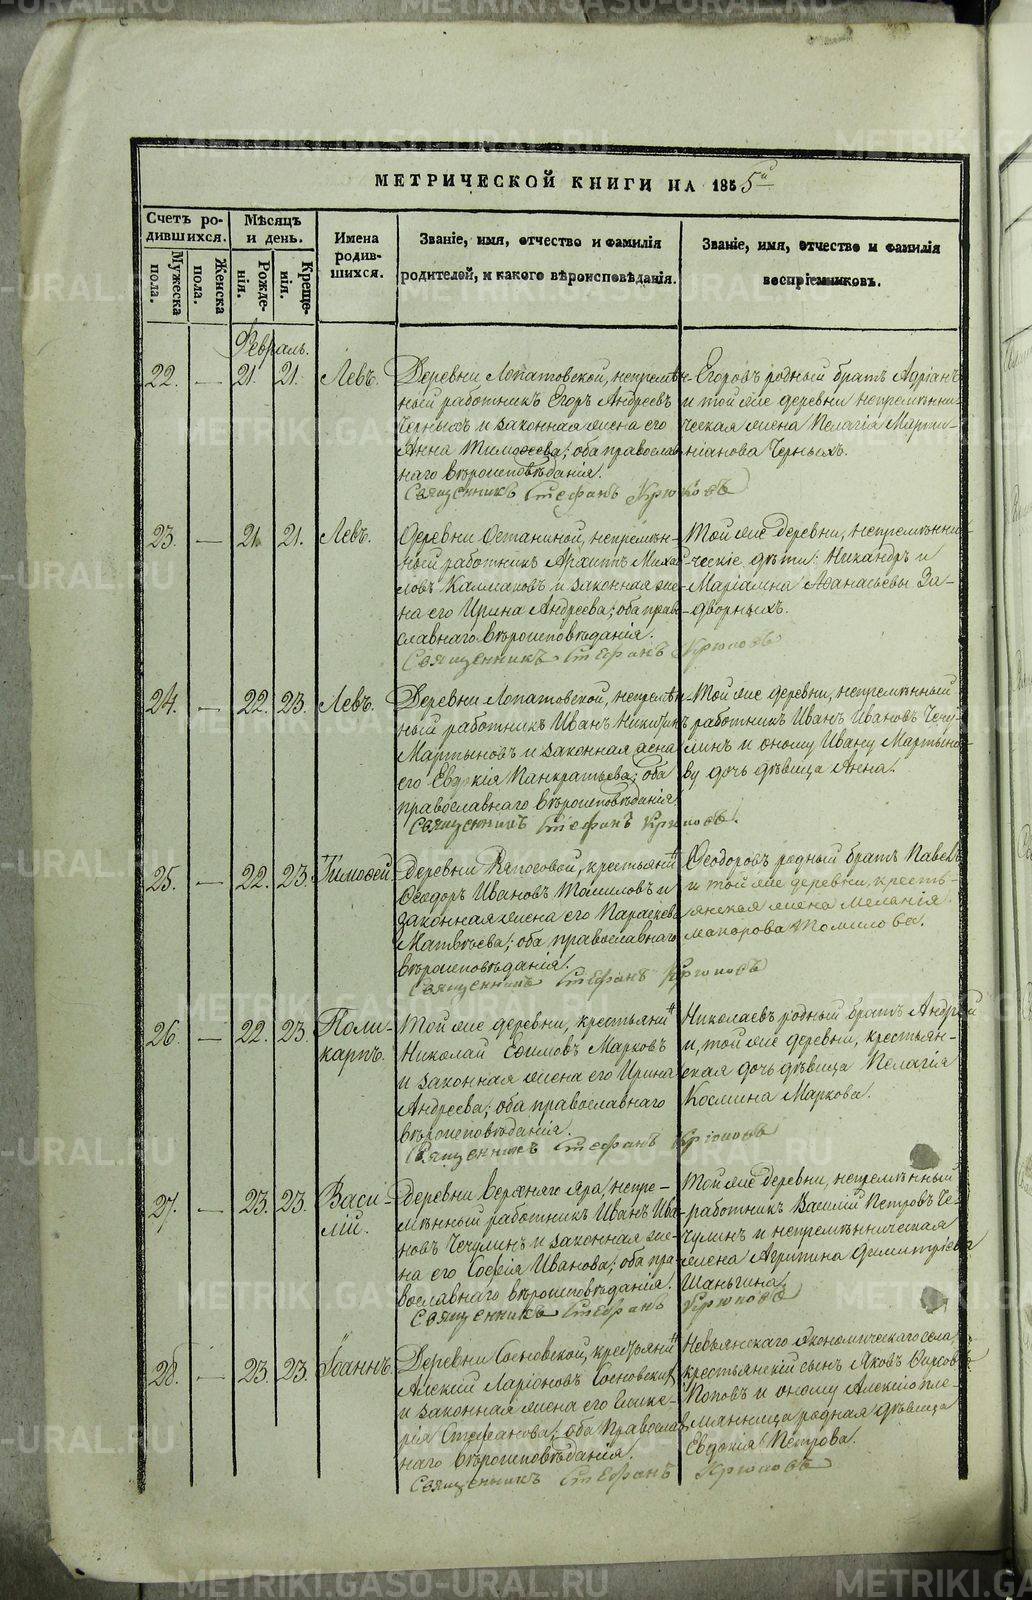 МЕТРИЧЕСКОЙ КНИГИ НА 1855й
Счетъ ро-
дившихся.
Мужеска пола.
Женска пола.
Мѣсяцъ
и день.
Рожде-
нія.
Креще-
нія.
Имена
родив-
шихся.
Званіе, имя, отчество и фамилія
родителей, и какого вѣроисповѣданія.
Званіе, имя, отчество и фамилія
воспріемниковъ.
Февраль.
22. — 21. 21. Левъ.
Деревни Лопатовской, непремѣн-
ный работникъ Егоръ Андреевъ
Черныхъ и законная жена его
Анна Тимоѳеева; оба православ
наго вѣроисповѣданія.
Егоровъ родный братъ Адріанъ
и той же деревни непремѣнни-
ческая жена Пелагія Марти-
ніанова Черныхъ.
Священникъ Стефанъ Крюковъ
23. — 21. 21. Левъ.
Деревни Останиной, непремѣн-
ный работникъ Архиппъ Михай
ловъ Калмаковъ и законная же-
на его Ирина Андреева; оба прав
славнаго вѣроисповѣданія.
Той же деревни, непремѣнни-
ческіе дѣти: Никандръ и
Маріамна Аѳанасьевы За-
дворныхъ.
Священникъ Стефанъ Крюковъ
24. — 22. 23. Левъ.
Деревни Лопатовской, непремѣн-
ный работникъ Иванъ Никитинъ
Мартыновъ и законная жена
его Евдокія Панкратьева; оба
православнаго вѣроисповѣданія.
Той же деревни, непремѣнный
работникъ Иванъ Ивановъ Чечу-
линъ и оному Ивану Мартыно-
ву дочь дѣвица Анна.
Священникъ Стефанъ Крюковъ.
25. — 22. 23. Тимоѳей.
Деревни крестьянинъ
Ѳеодоръ Ивановъ Томиловъ и
законная жена его Параскева
Матвѣева; оба православнаго
вѣроисповѣданія.
Ѳеодоровъ родный братъ Павелъ
и той же деревни, кресть-
янская жена Меланія
Макарова Томилова.
Священникъ Стефанъ Крюковъ
26. — 22. 23. Поли-
карпъ.
Той же деревни, крестьянинъ
Николай Ефимовъ Марковъ
и законная жена его Ирина
Андреева; оба православнаго
вѣроисповѣданія.
Николаевъ родный братъ Андрей
и, той же деревни, крестьян-
ская дочь дѣвица Пелагія
Космина Маркова.
Священникъ Стефанъ Крюковъ
27. — 23. 23. Васи-
лій.
Деревни Верхняго Яра, непре-
мѣнный работникъ Иванъ Ива-
новъ Чечулинъ и законная же-
на его Софія Иванова; оба пра-
вославнаго вѣроисповѣданія.
Той же деревни, непремѣнный
работникъ Василій Петровъ Че-
чулинъ и непремѣнническая
жена Агрипина Димитріева
Шаньгина.
Священникъ Стефанъ Крюковъ
28. — 23. 23. Іоаннъ.
Деревни Сосновской, крестьянинъ
Алексій Ларіоновъ Сосновскихъ
и законная жена его Глике-
рія Стефанова; оба Православ
наго вѣроисповѣданія.
Невьянскаго экономическаго села,
крестьянскій сынъ Яковъ Фирсовъ
Поповъ и оному Алексію пле-
мянница родная дѣвица
Евдокія Петрова.
Священникъ Стефанъ Крюковъ
METRIKI.GASO-URAL.RU